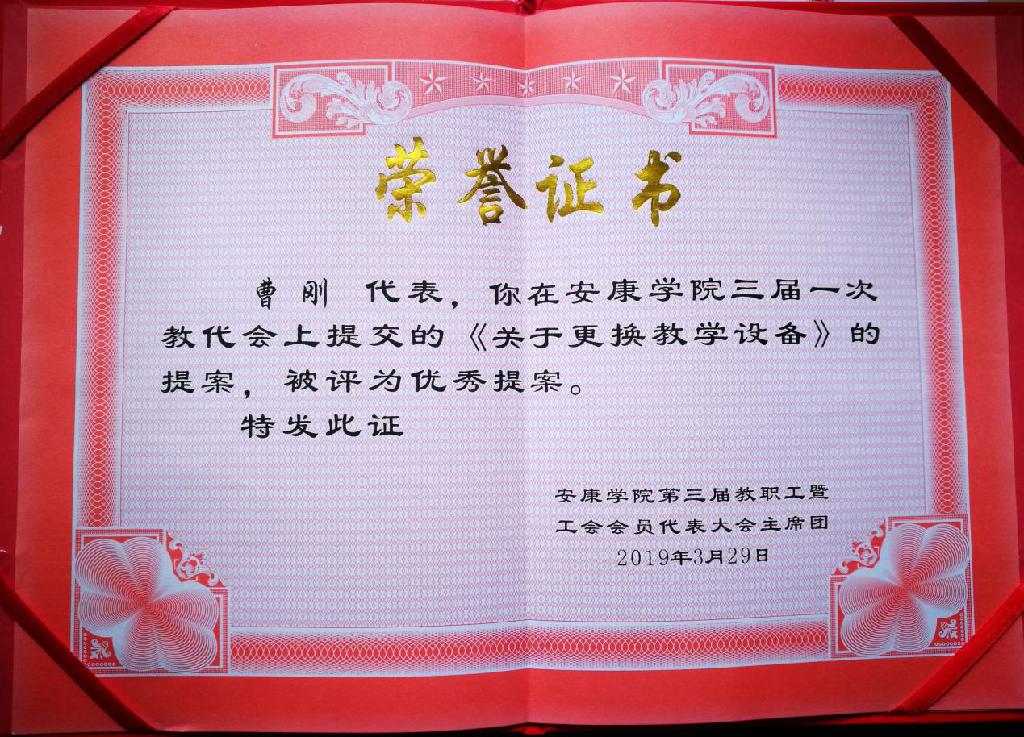 荣誉证书
曹刚 代表，你在安康学院三届一次
教代会上提交的《关于更换教学设备》的
提案，被评为优秀提案。
特发此证
安康学院第三届教职工暨
工会会员代表大会主席团
2019年3月29日